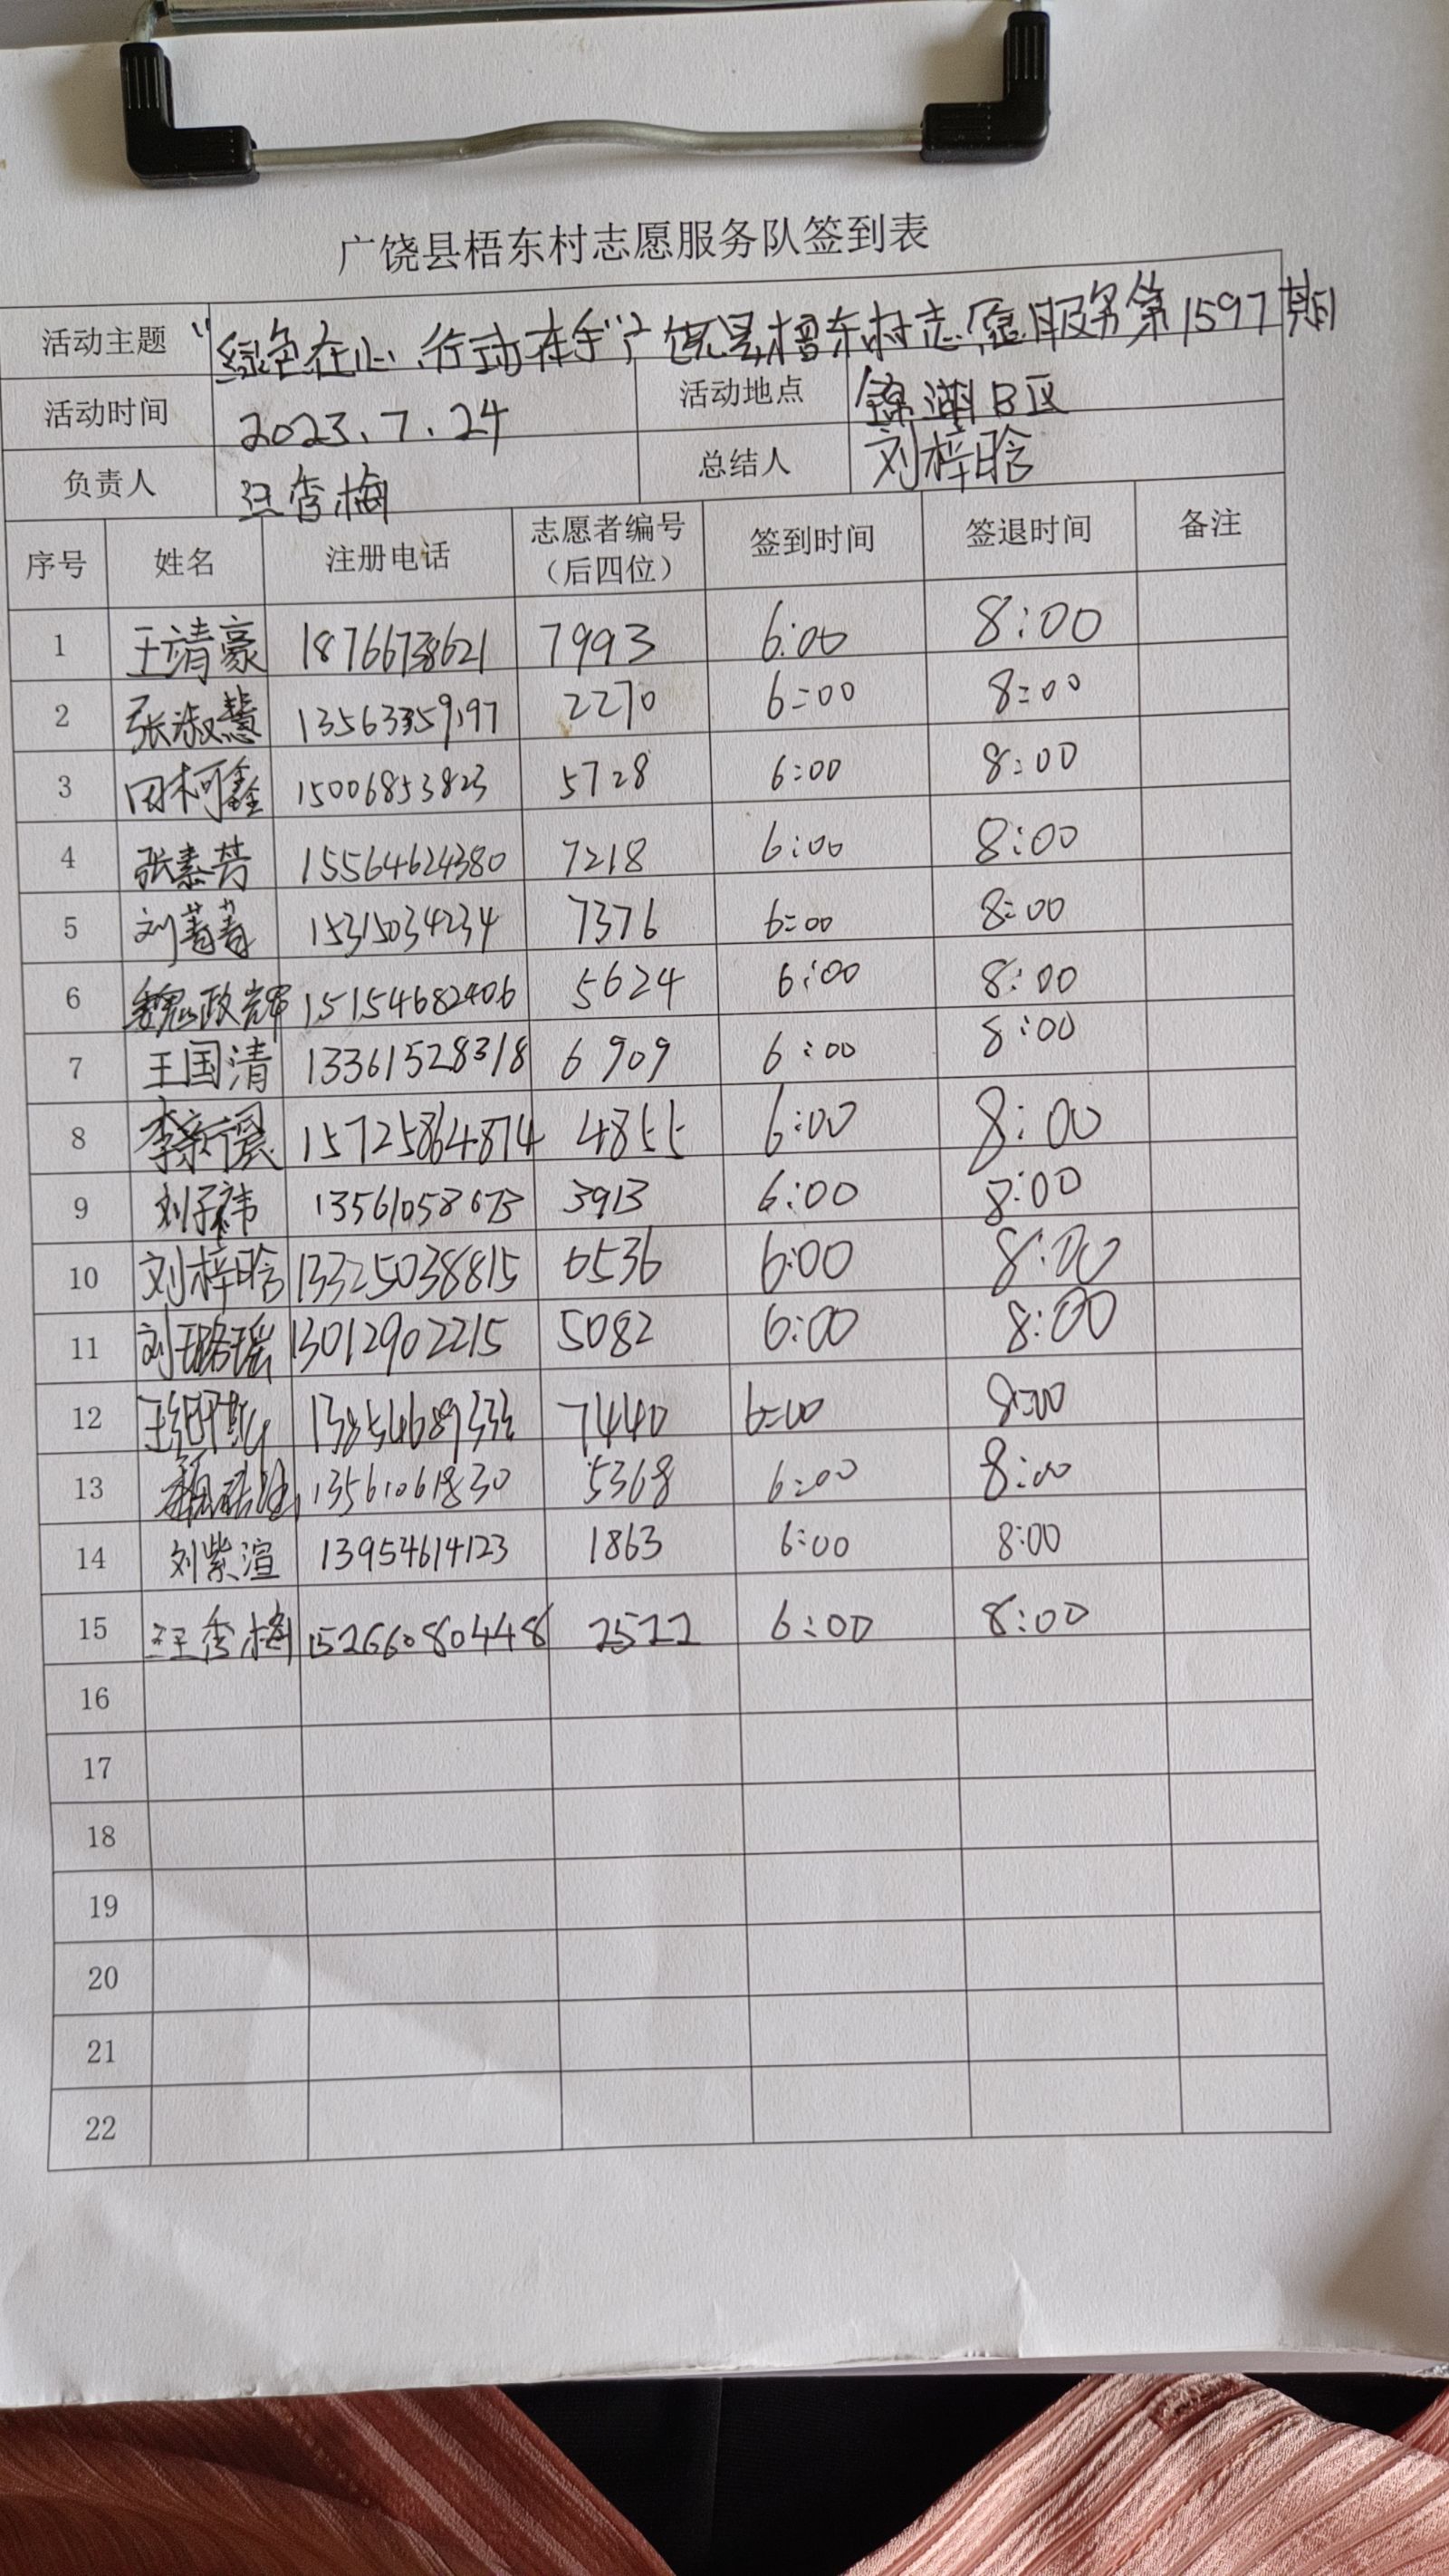 广饶县梧东村志愿服务队签到表
活动主题 "绿色在心、行动在手"广饶县梧东村志愿服务第1597期
活动时间 2023.7.24 活动地点 锦湖B区
负责人 汪秀梅 总结人 刘梓晗
序号 姓名 注册电话 志愿者编号（后四位） 签到时间 签退时间 备注
1 王靖豪 18766738621 7993 6:00 8:00
2 张淑慧 13563359197 2270 6:00 8:00
3 田柯鑫 15006853823 5728 6:00 8:00
4 张素芳 15564624380 7218 6:00 8:00
5 刘菁菁 15315034234 7376 6:00 8:00
6 魏政辉 15154682406 5624 6:00 8:00
7 王国清 13361528318 6909 6:00 8:00
8 4855 6:00 8:00
9 刘子祎 13561058673 3913 6:00 8:00
10 刘梓晗 13325038815 6536 6:00 8:00
11 刘璐瑶 13012902215 5082 6:00 8:00
12 7440 6:00 8:00
13 13561061830 5368 6:00 8:00
14 刘紫渲 13954614123 1863 6:00 8:00
15 汪秀梅 15266080448 2522 6:00 8:00
16
17
18
19
20
21
22